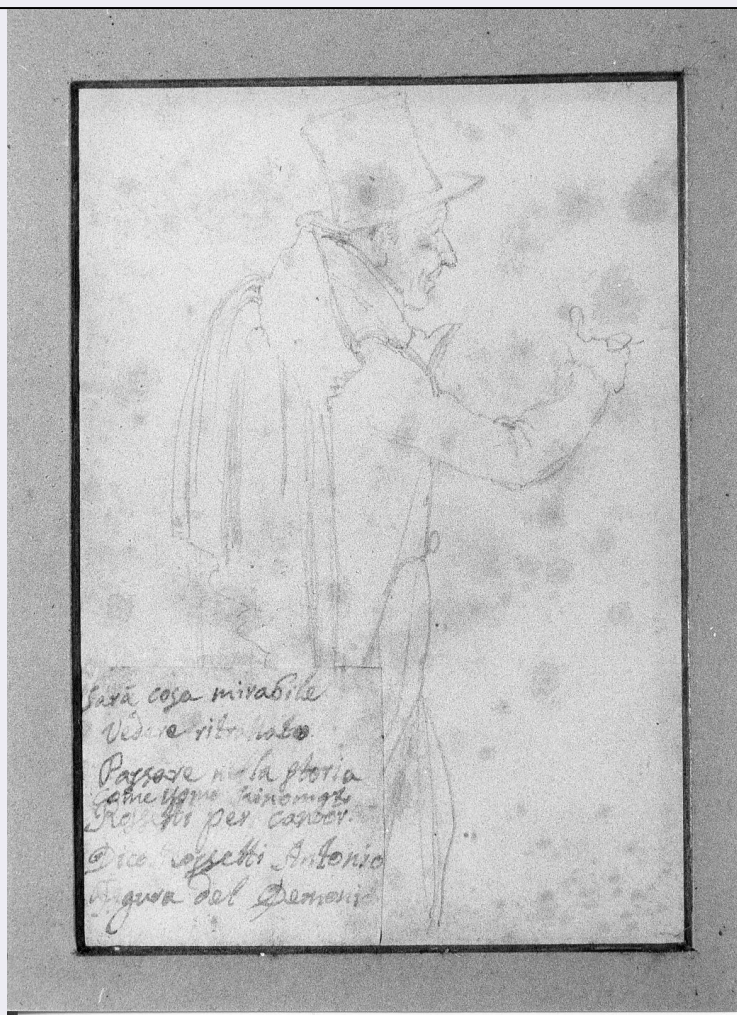 sarà cosa mirabile
Vedere ritrattato
Passare nella storia
Come Uomo
Rossetti per
Dico Rossetti Antonio
Figura del Demonio